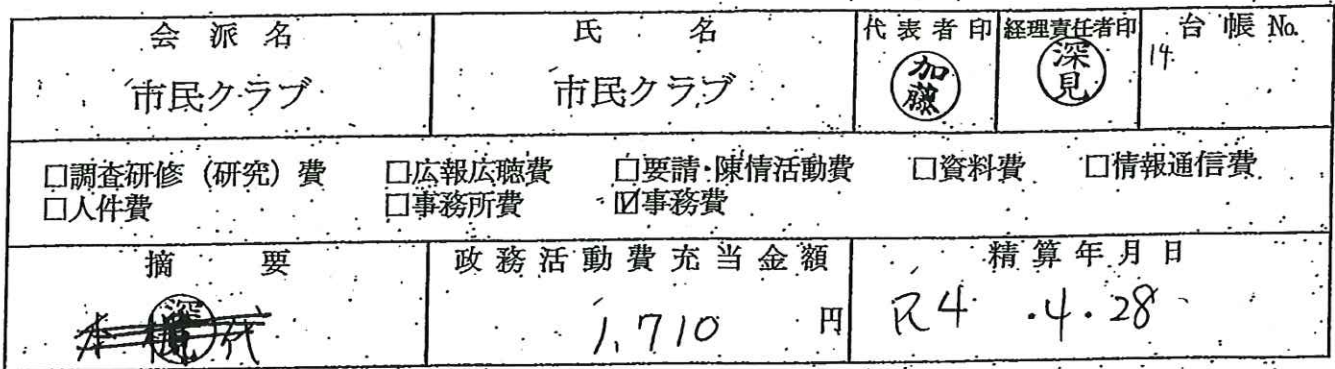 会派名 氏名 代表者印 経理責任者印 台帳No.
市民クラブ 市民クラブ 加藤 深見 14.
□調査研修（研究）費 □広報広聴費 □要請・陳情活動費 □資料費 □情報通信費
□人件費 □事務所費 ☑事務費
摘要 政務活動費充当金額 精算年月日
1,710 円 R4.4.28